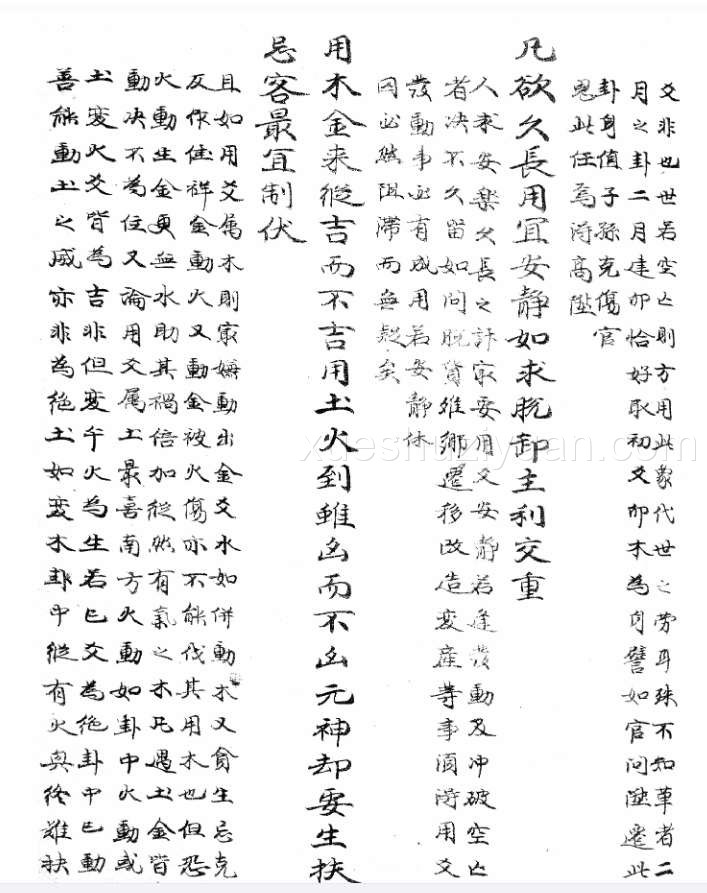 爻非也世若空亡則方用此象代世之劳耳殊不知草者二
月之卦二月建卯恰好取初爻卯木為身譬如官问陞遷此
卦身值子孫克傷官
鬼此任為得高陞
凡欲久長用宜安静如求脱卸主利交重
人求安樂久長之計家要用爻安静若逢發動及冲破空亡
者决不久留如问脱貨维鄉遷移改造变産等事須得用爻
發動事必有成用若安静休
囚必然阻滞而無疑矣
用木金来縱吉而不吉用土火到雖凶而不凶元神却要生扶
忌客最宜制伏
且如用爻属木則家嫌動出金爻水如併動木又貪生忌克
反作佳祥金動火又動金被火傷亦不能伐其用木也但恐
火動生金更無水助其禍倍加縱然有氣之木凡遇土金皆
動决不為佳又論用爻属土最喜南方火動如卦中火動或
土变火爻皆為吉非但变午火為生若巳爻為绝卦中巳動
善能動土之威亦非為绝土如变木卦中縱有火與終難扶
xueshuziyuan.com